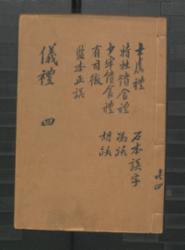 士虞禮
特牲饋食禮
少牢饋食禮
有司徹
監本正誤
石本誤字
儀禮 四